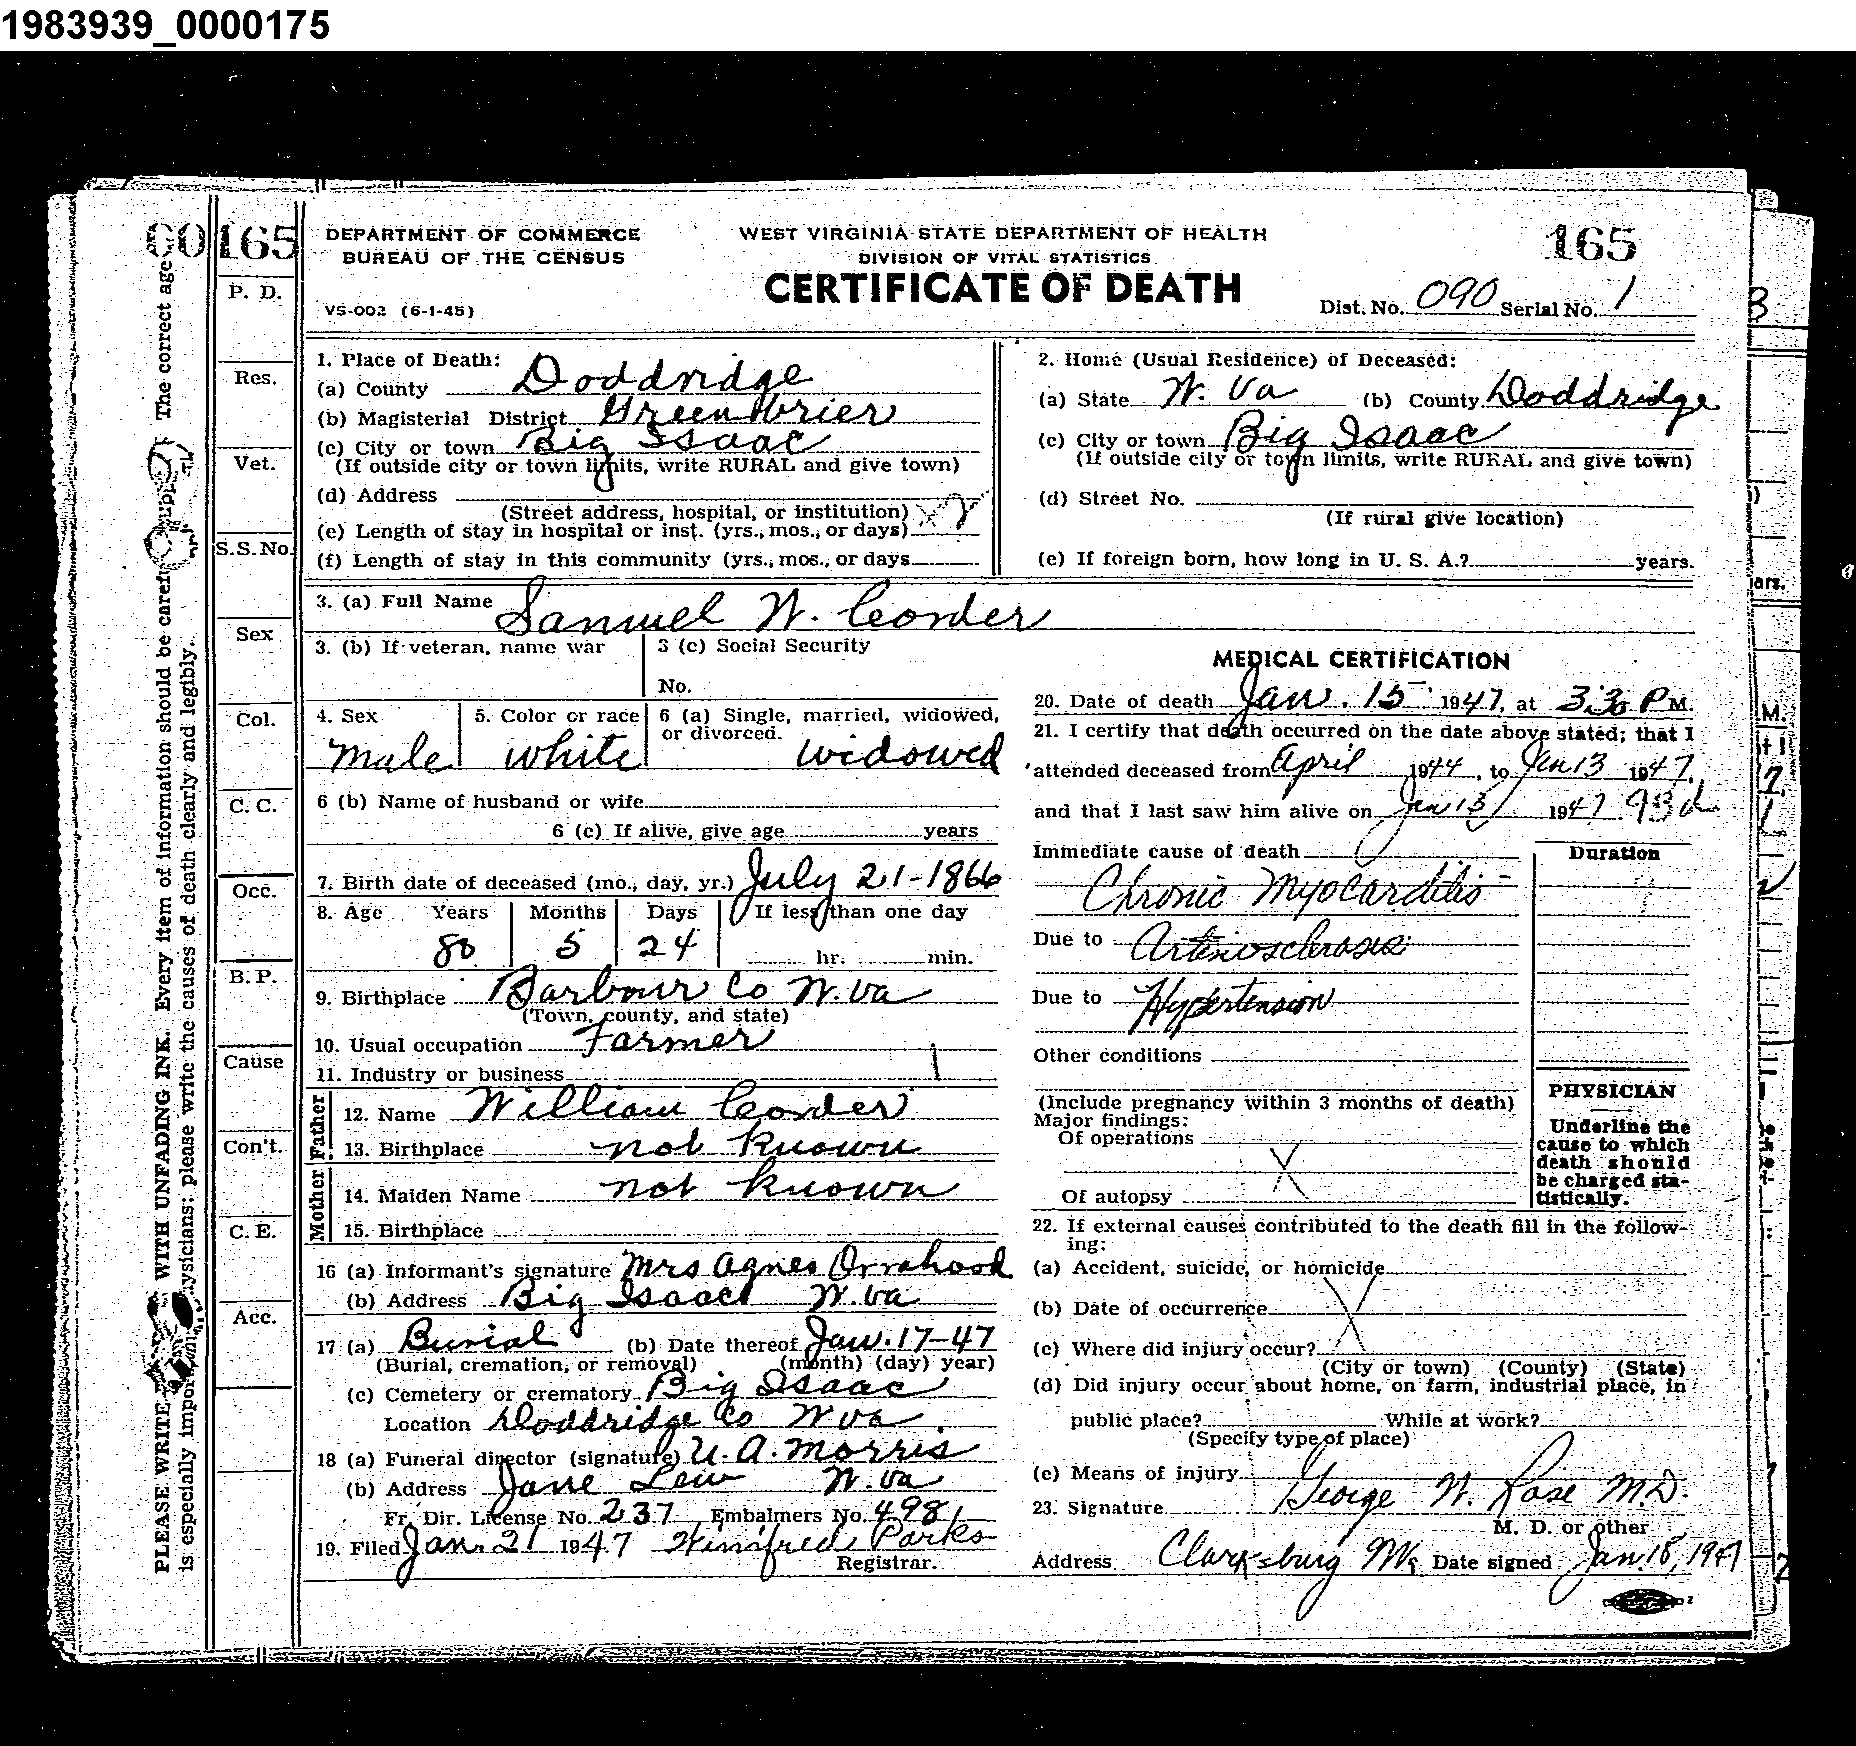 1983939_0000175
165
DEPARTMENT OF COMMERCE
BUREAU OF THE CENSUS
VS-002 (6-1-45)
WEST VIRGINIA STATE DEPARTMENT OF HEALTH
DIVISION OF VITAL STATISTICS
CERTIFICATE OF DEATH
165
Dist. No. 090 Serial No. 1
P. D.
Res.
Vet.
S.S. No.
Sex
Col.
C. C.
Occ.
B. P.
Cause
Con't.
C. E.
Acc.
PLEASE WRITE WITH UNFADING INK. Every item of information should be The correct age
is especially ysicians: please write the causes of death clearly and legibly.
1. Place of Death:
(a) County Doddridge
(b) Magisterial District Greenbrier
(c) City or town Big Isaac
(If outside city or town limits, write RURAL and give town)
(d) Address
(Street address, hospital, or institution)
(e) Length of stay in hospital or inst. (yrs., mos., or days)
(f) Length of stay in this community (yrs., mos., or days
2. Home (Usual Residence) of Deceased:
(a) State W. Va (b) County Doddridge
(c) City or town Big Isaac
(If outside city or town limits, write RURAL and give town)
(d) Street No.
(If rural give location)
(e) If foreign born, how long in U. S. A.? years.
3. (a) Full Name Samuel W. Corder
3. (b) If veteran, name war
3 (c) Social Security
No.
4. Sex
male
5. Color or race
white
6 (a) Single, married, widowed,
or divorced. widowed
6 (b) Name of husband or wife
6 (c) If alive, give age years
7. Birth date of deceased (mo., day, yr.) July 21-1866
8. Age Years Months Days If less than one day
80 5 24 hr. min.
9. Birthplace Barbour Co W. Va
(Town, county, and state)
10. Usual occupation Farmer
11. Industry or business
Father
12. Name William Corder
13. Birthplace not known
Mother
14. Maiden Name not known
15. Birthplace
16 (a) Informant's signature Mrs Agnes Orrahood
(b) Address Big Isaac W. Va
17 (a) Burial (b) Date thereof Jan. 17-47
(Burial, cremation, or removal) (month) (day) year)
(c) Cemetery or crematory Big Isaac
Location Doddridge Co W Va
18 (a) Funeral director (signature) U. A. Morris
(b) Address Jane Lew W. Va
Fr. Dir. License No. 237 Embalmers No. 498
19. Filed Jan. 21 1947 Winifred Parks
Registrar.
MEDICAL CERTIFICATION
20. Date of death Jan. 15 1947, at 3:30 P M.
21. I certify that death occurred on the date above stated; that I
attended deceased from April 1944, to Jan 13 1947,
and that I last saw him alive on Jan 13 1947 93d
Immediate cause of death
Duration
Chronic Myocarditis
Due to Arteriosclerosis
Due to Hypertension
Other conditions
(Include pregnancy within 3 months of death)
Major findings:
Of operations
Of autopsy
PHYSICIAN
Underline the
cause to which
death should
be charged sta-
tistically.
22. If external causes contributed to the death fill in the follow-
ing:
(a) Accident, suicide, or homicide
(b) Date of occurrence
(c) Where did injury occur?
(City or town) (County) (State)
(d) Did injury occur about home, on farm, industrial place, in
public place? While at work?
(Specify type of place)
(e) Means of injury
23. Signature George W. Rose M.D.
M. D. or other
Address Clarksburg Date signed Jan. 18, 1947